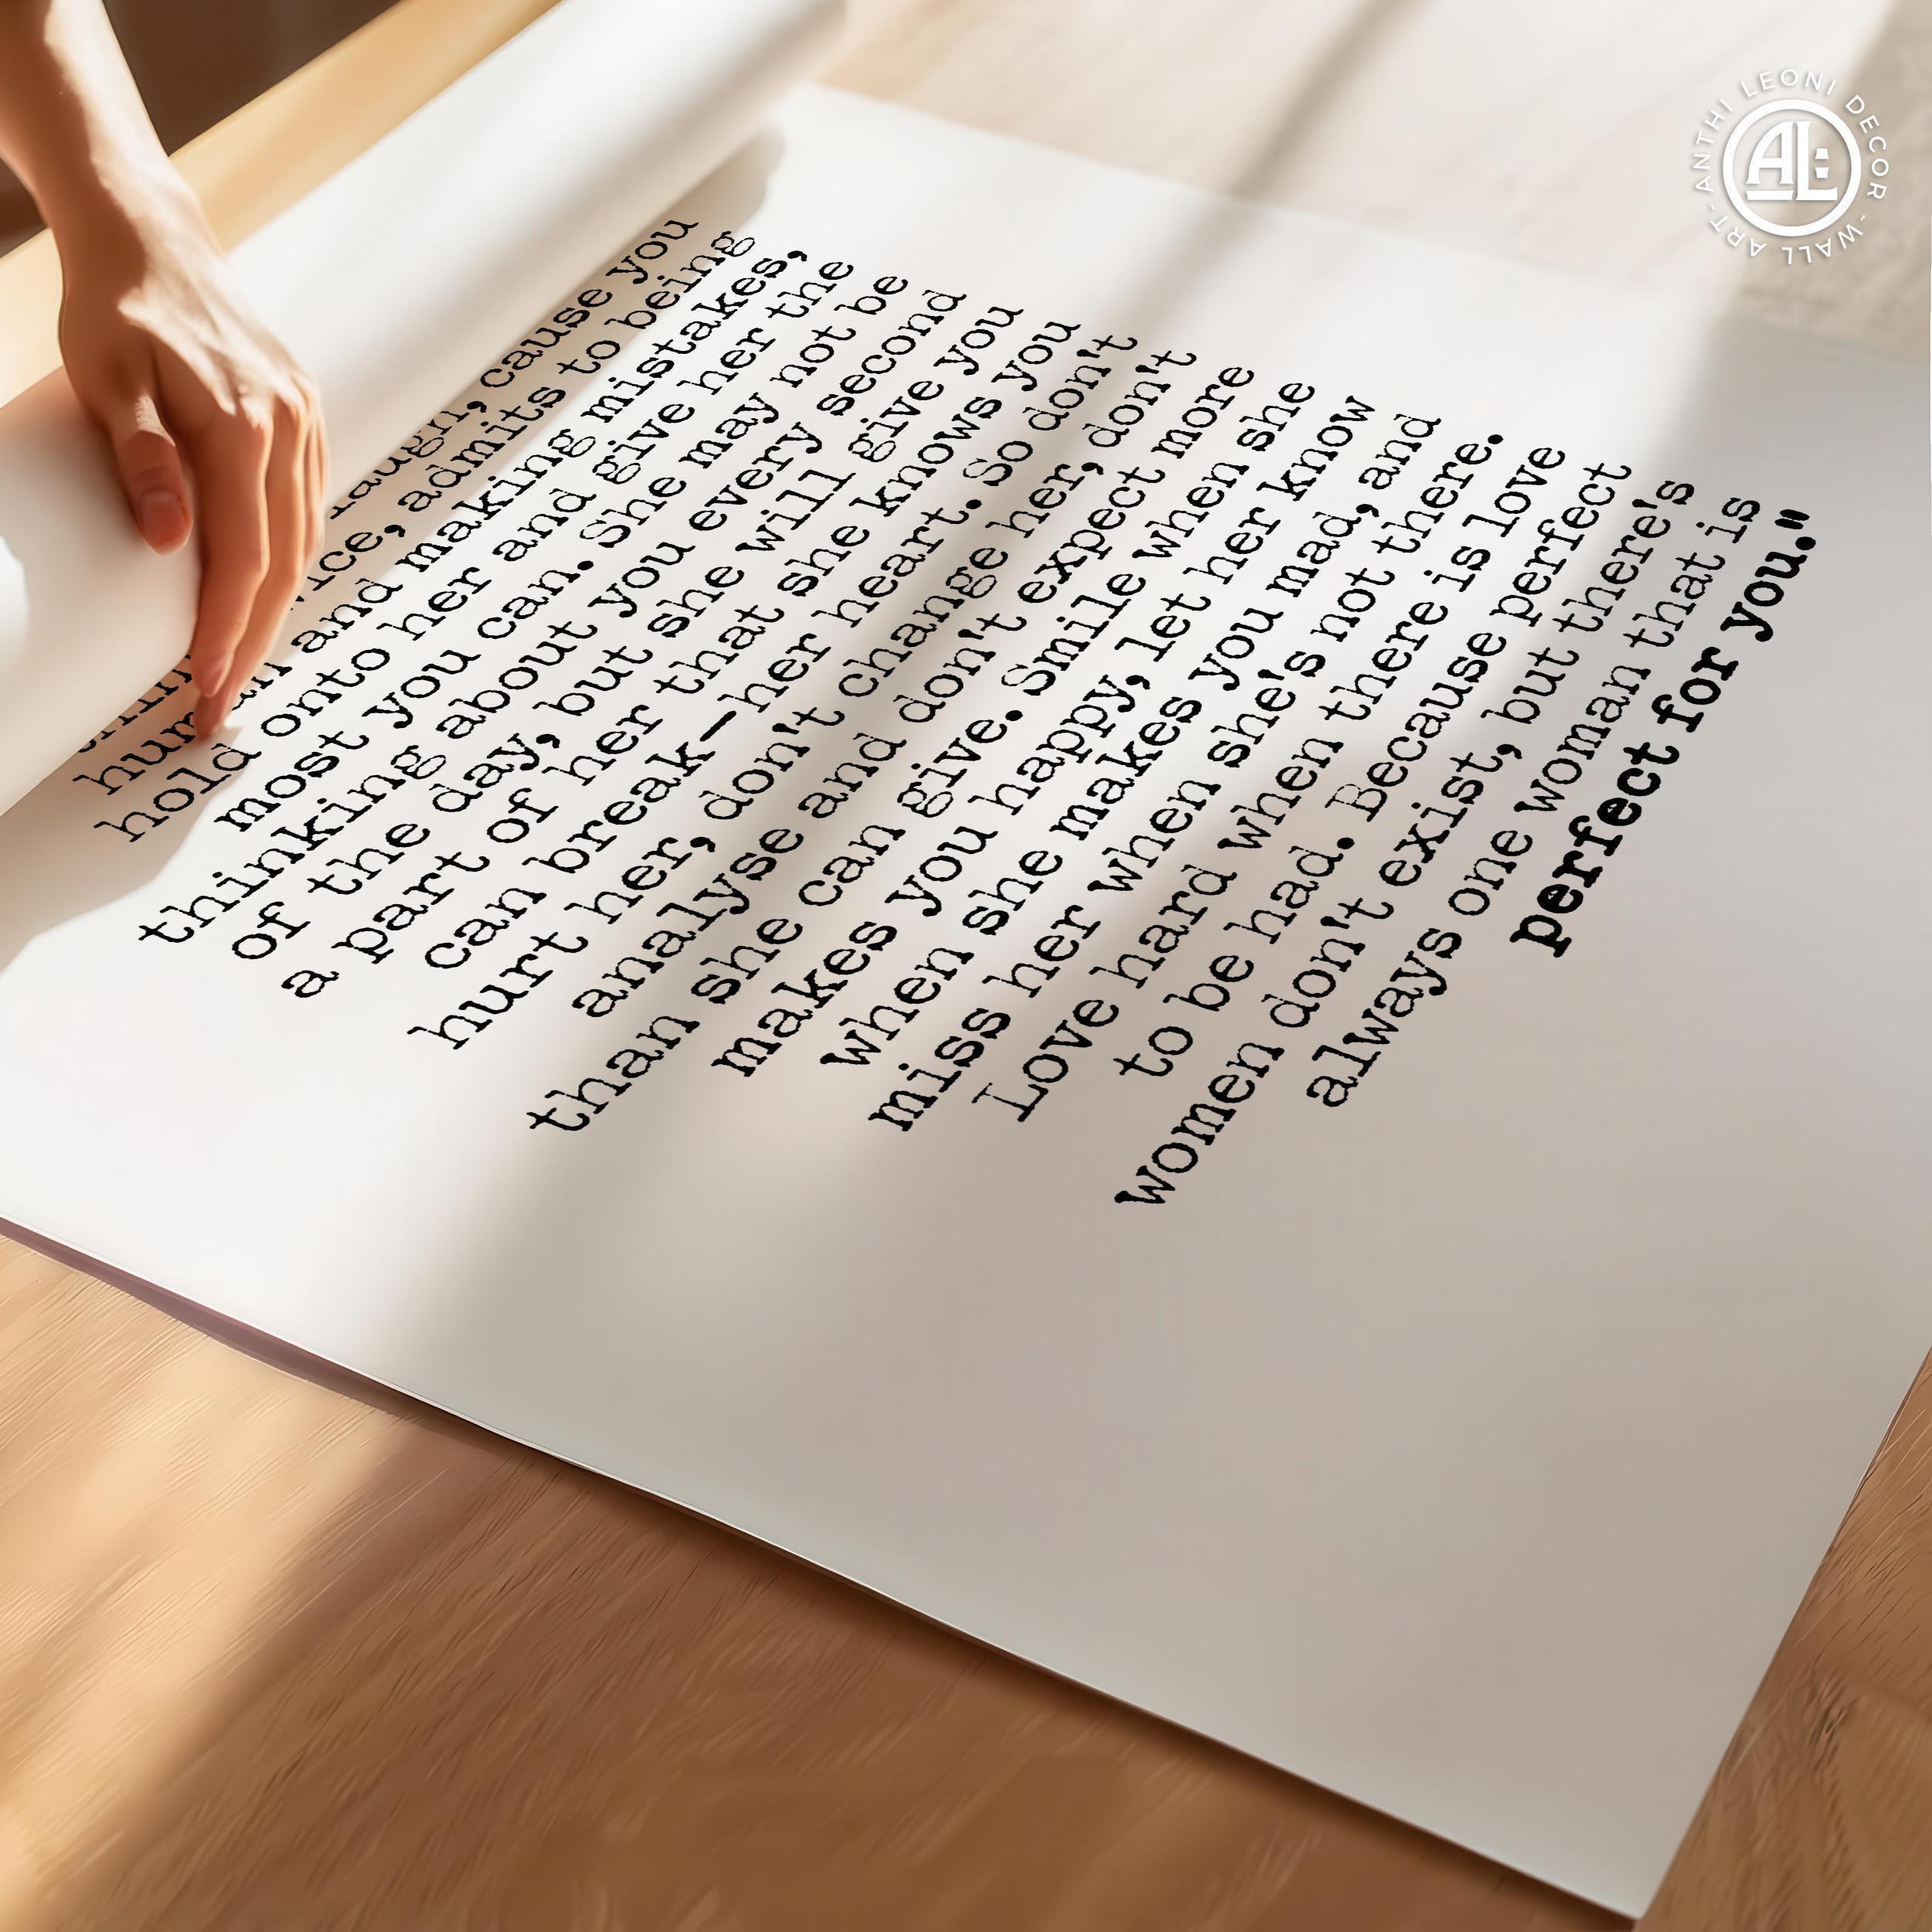 laugh, cause you
admits to being
human and making mistakes,
hold onto her and give her the
most you can. She may not be
thinking about you every second
of the day, but she will give you
a part of her that she knows you
can break—her heart. So don't
hurt her, don't change her, don't
analyse and don't expect more
than she can give. Smile when she
makes you happy, let her know
when she makes you mad, and
miss her when she's not there.
Love hard when there is love
to be had. Because perfect
women don't exist, but there's
always one woman that is
perfect for you."
ANTHI LEONI DECOR - WALL ART -
AL